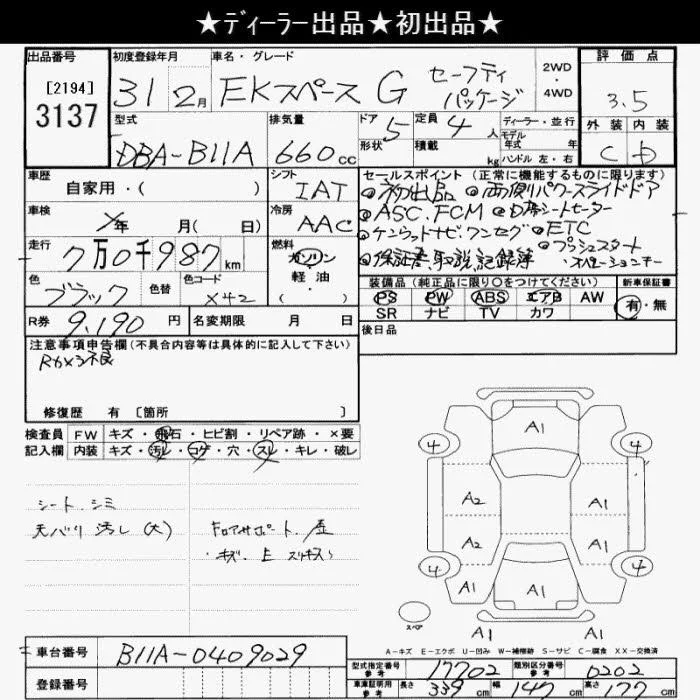 ★ディーラー出品★初出品★
出品番号
[2194]
3137
初度登録年月
31 2月
車名・グレード
EKスペース G セーフティ
パッケージ
2WD
・
4WD
評価点
3.5
外装 内装
C D
型式
DBA-B11A
排気量
660cc
ドア 5
形状
定員 4人
積載 kg
ディーラー・並行
モデル
年式 年
ハンドル 左・右
車歴
自家用・( )
シフト
IAT
車検
年 月( 日)
冷房
AAC
走行
7万0千987km
燃料
ガソリン
軽油・
( )
色
ブラック
色替
色コード
X42
R券
9,190円
名変期限 月 日
セールスポイント(正常に機能するものに限ります)
◎初出品 ◎両側パワースライドドア
◎ASC.FCM ◎D席シートヒーター
◎ケンウッドナビ.ワンセグ ◎ETC
◎プッシュスタート
◎保証書、取説、記録簿 ・オペレーションキー
装備品(純正品に限り〇をつけてください)
PS PW ABS エアB AW
SR ナビ TV カワ
新車保証書
有・無
後日品
注意事項申告欄(不具合内容等は具体的に記入して下さい)
Rカメラ不良
修復歴 有 [箇所 ]
検査員
記入欄
FW キズ・飛石・ヒビ割・リペア跡・×要
内装 キズ・汚レ・コゲ・穴・スレ・キレ・破レ
シート.シミ
天バリ 汚レ(大)
キズ.
A1
4 4
A2 A1
A2 A1
4 4
A1 A1 A1
A1
スペア
A-キズ E-エクボ U-凹み W-補修跡 S-サビ C-腐食 XX-交換済
車台番号 B11A-0409029
登録番号
型式指定番号
参考
17702
類別区分番号
参考
0202
車庫証明用
参考
長さ 339cm 幅 147cm 高さ 177cm